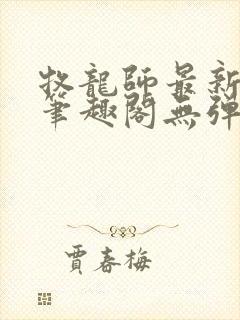 牧龍師最新
筆趣閣無彈
賈春梅